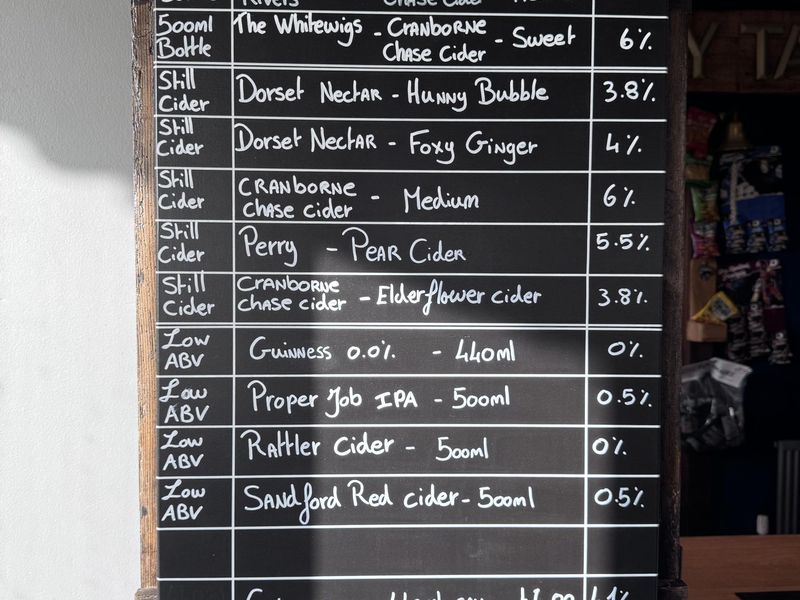 Rivers Chase Cider
500ml Bottle The Whitewigs - Cranborne Chase Cider - Sweet 6%
Still Cider Dorset Nectar - Hunny Bubble 3.8%
Still Cider Dorset Nectar - Foxy Ginger 4%
Still Cider Cranborne Chase Cider - Medium 6%
Still Cider Perry - Pear Cider 5.5%
Still Cider Cranborne Chase Cider - Elderflower cider 3.8%
Low ABV Guinness 0.0% - 440ml 0%
Low ABV Proper Job IPA - 500ml 0.5%
Low ABV Rattler Cider - 500ml 0%
Low ABV Sandford Red cider - 500ml 0.5%
Y TA